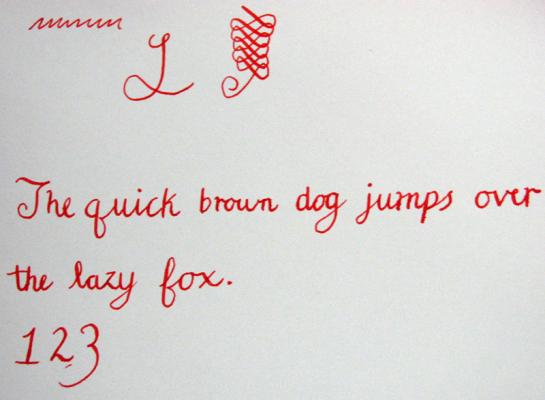 L
The quick brown dog jumps over
the lazy fox.
123